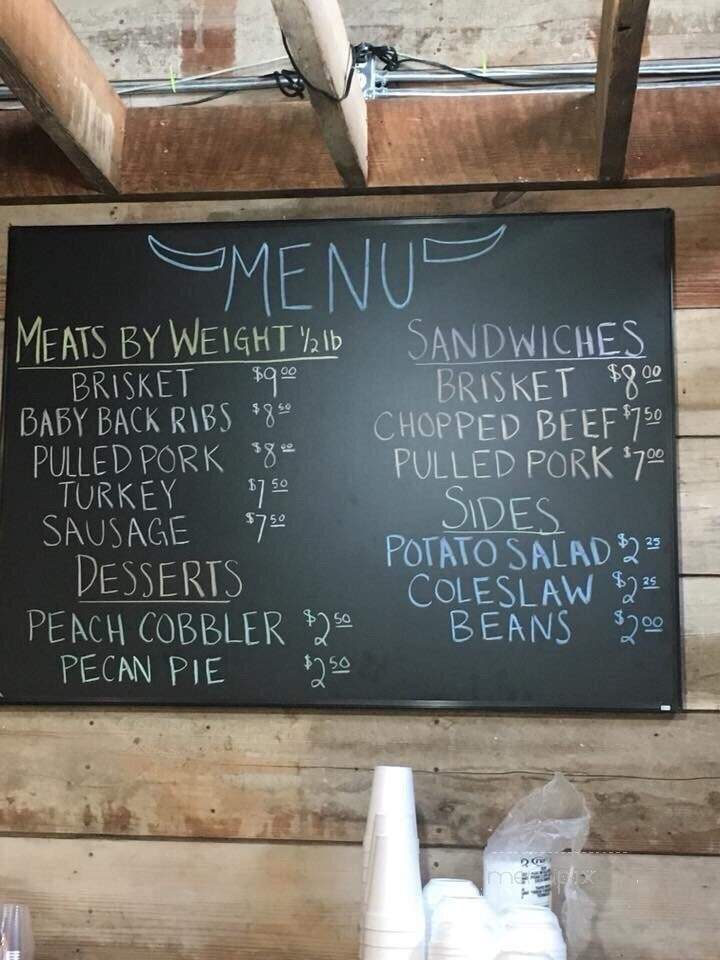 MENU
MEATS BY WEIGHT 1/2 lb
BRISKET $9.00
BABY BACK RIBS $8.50
PULLED PORK $8.00
TURKEY $7.50
SAUSAGE $7.50
DESSERTS
PEACH COBBLER $2.50
PECAN PIE $2.50
SANDWICHES
BRISKET $8.00
CHOPPED BEEF $7.50
PULLED PORK $7.00
SIDES
POTATO SALAD $2.25
COLESLAW $2.25
BEANS $2.00